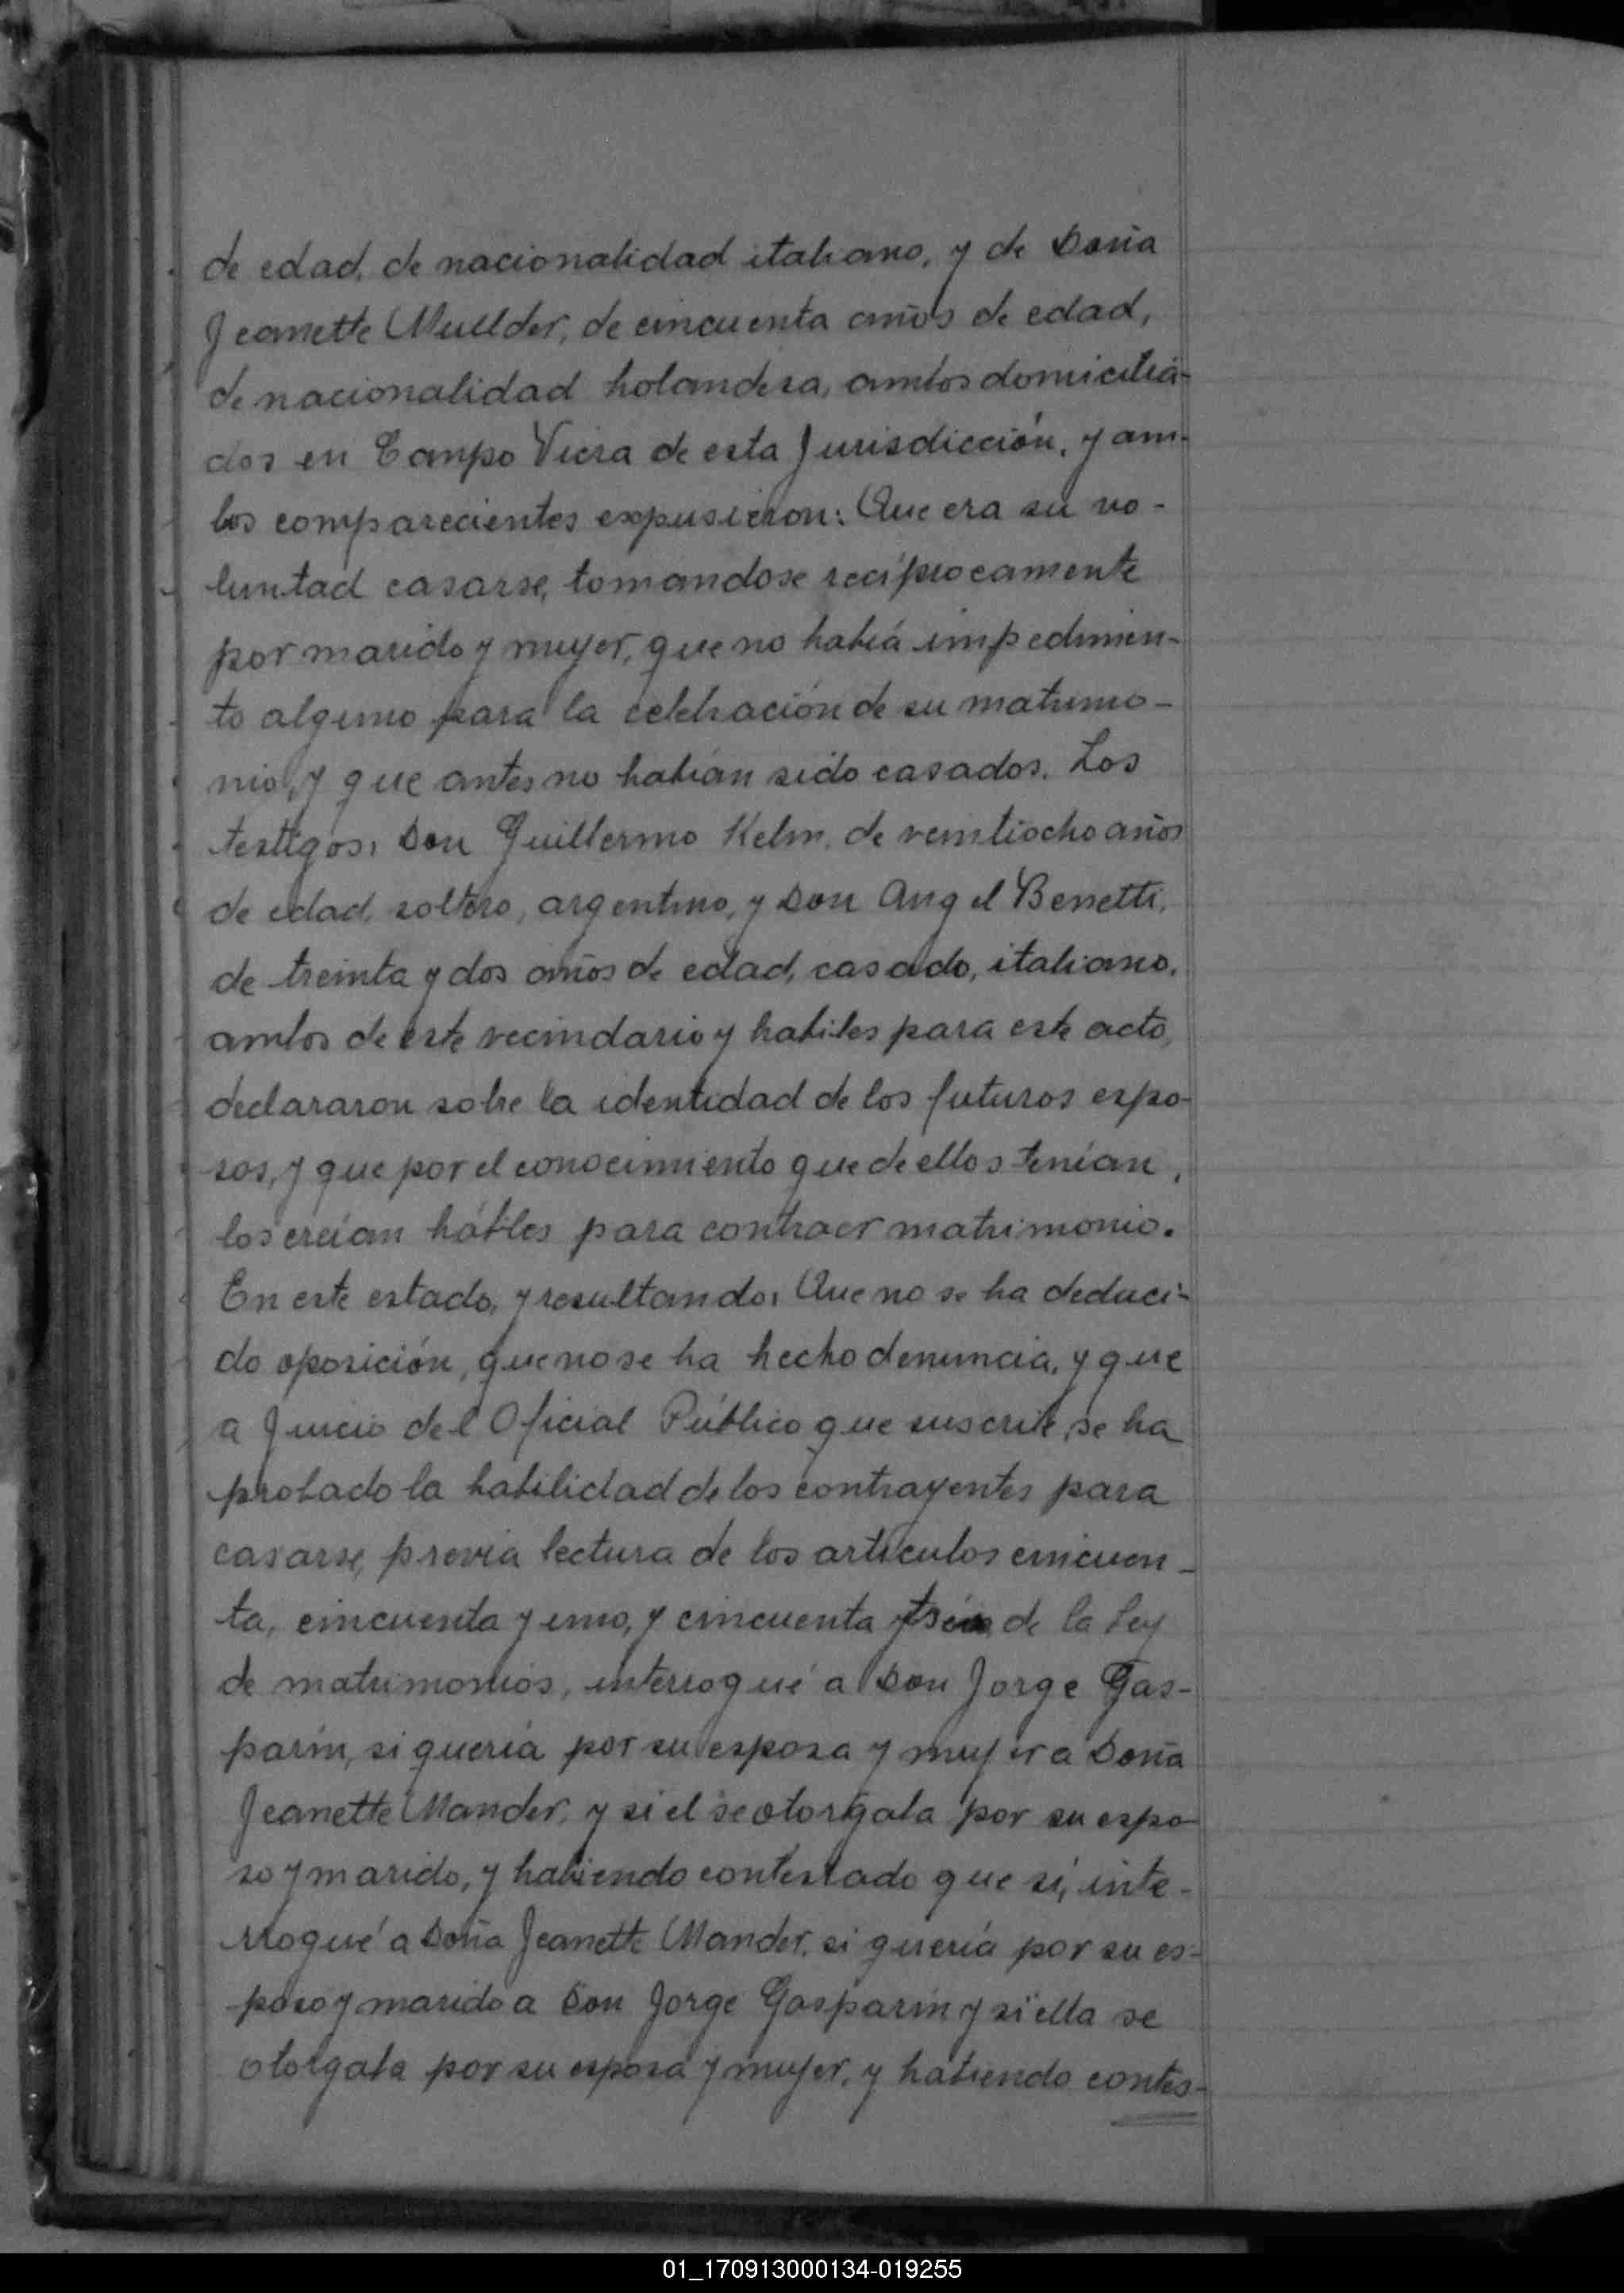 de edad, de nacionalidad italiano, y de Doña
Jeanette Muelder, de cincuenta años de edad,
de nacionalidad holandesa, ambos domicilia-
dos en Campo Viera de esta Jurisdicción, y am-
bos comparecientes expusieron: Que era su vo-
luntad casarse, tomandose recíprocamente
por marido y mujer, que no había impedimen-
to alguno para la celebración de su matrimo-
nio, y que antes no habían sido casados. Los
testigos: Don Guillermo Kelm, de veintiocho años
de edad, soltero, argentino, y Don Angel Benetti,
de treinta y dos años de edad, casado, italiano,
ambos de este vecindario y habiles para este acto,
declararon sobre la identidad de los futuros espo-
sos, y que por el conocimiento que de ellos tenían,
los creían hábiles para contraer matrimonio.
En este estado, y resultando: Que no se ha deduci-
do oposición, que no se ha hecho denuncia, y que
a Juicio del Oficial Público que suscribe, se ha
probado la habilidad de los contrayentes para
casarse, previa lectura de los artículos cincuen-
ta, cincuenta y uno, y cincuenta y de la Ley
de matrimonios, interrogué a Don Jorge Gas-
parin, si quería por su esposa y mujer a Doña
Jeanette Mander, y si el se otorgaba por su espo-
so y marido, y habiendo contestado que sí, inte-
rrogué a Doña Jeanette Mander, si quería por su es-
poso y marido a Don Jorge Gasparin y si ella se
otorgaba por su esposa y mujer, y habiendo contes-
01_170913000134-019255